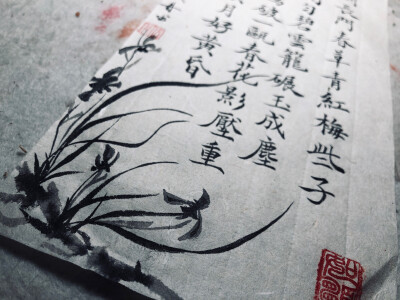 長門春草青紅梅些子
勻碧雲龍碾玉成塵
一甌春花影壓重
月好黃昏